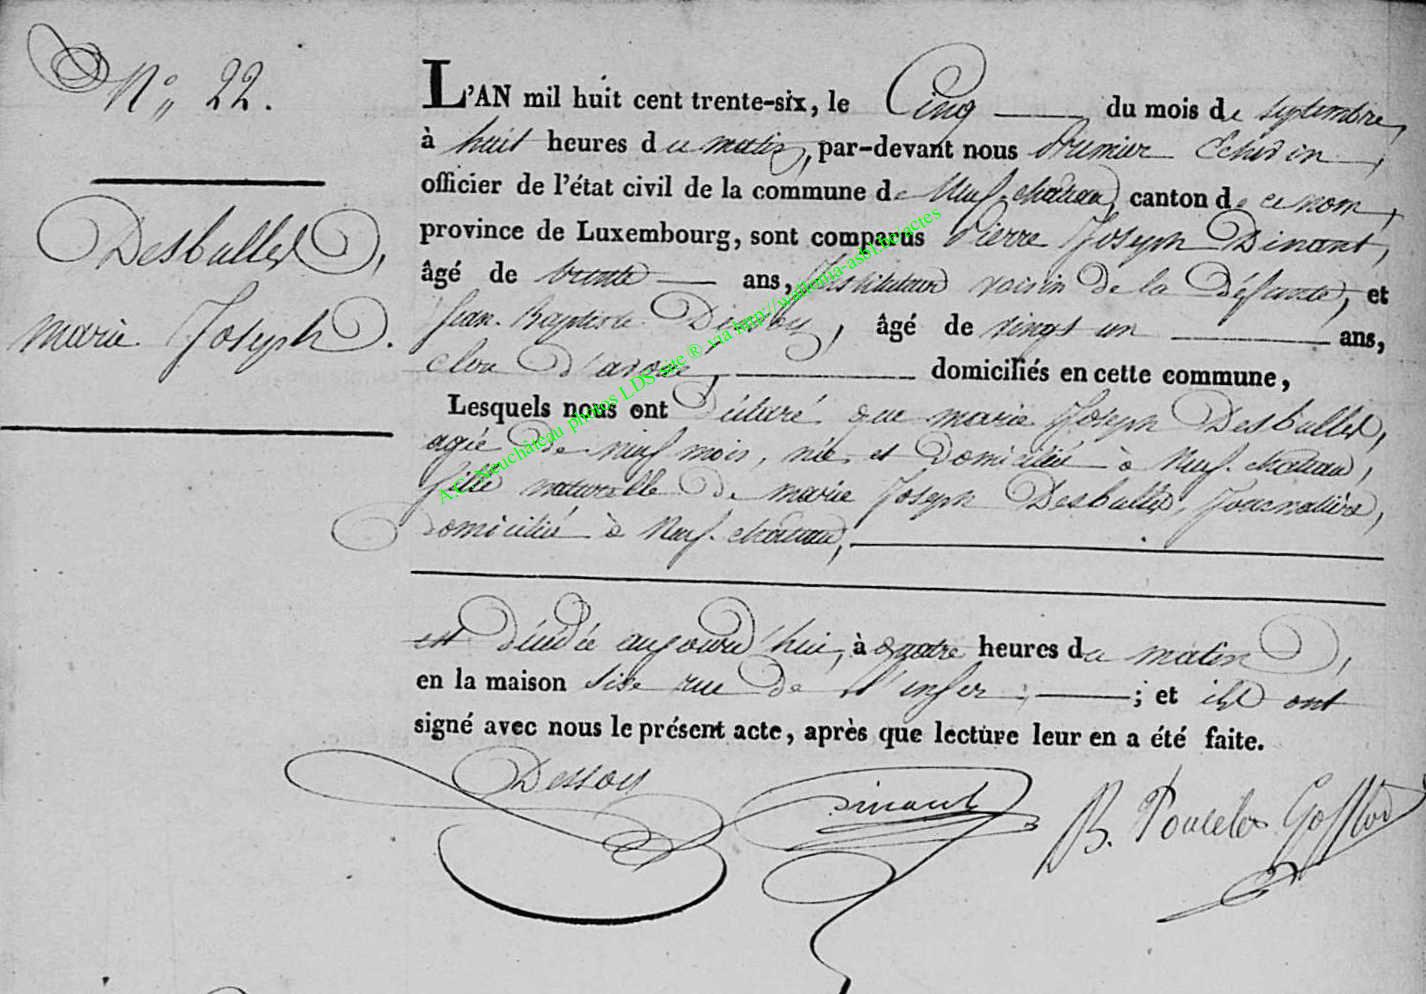 N° 22.
Desballes,
marie Joseph.
L'AN mil huit cent trente-six, le Cinq du mois de septembre,
à huit heures du matin, par-devant nous premier Echevin,
officier de l'état civil de la commune de Neuf-chateau, canton de ce nom,
province de Luxembourg, sont comparus Pierre Joseph Dinant,
âgé de trente ans, Instituteur voisin de la défunte, et
Jean-Baptiste Dessoy, âgé de vingt un ans,
domiciliés en cette commune,
Lesquels nous ont déclaré que marie Joseph Desballes,
agée de neuf mois, née et domiciliée à Neuf-chateau,
fille naturelle de marie Joseph Desballes, Journalière,
domiciliée à Neuf-chateau,
est décédée aujourd'hui, à quatre heures du matin,
en la maison sise rue de l'enfer; et ils ont
signé avec nous le présent acte, après que lecture leur en a été faite.
Dessoy Dinant B. Poncelet
A.C. Neuchâteau photos LDS site ® via http://wallonia-asbl.be/actes